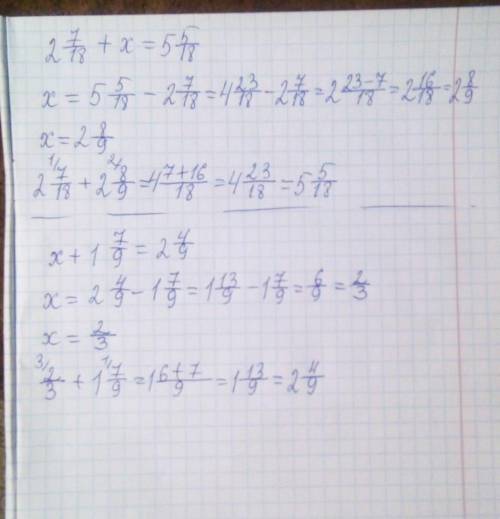 2 7/18 + x = 5 5/18
x = 5 5/18 - 2 7/18 = 4 23/18 - 2 7/18 = 2 23-7/18 = 2 16/18 = 2 8/9
x = 2 8/9
2 1/ 7/18 + 2 2/ 8/9 = 4 7+16/18 = 4 23/18 = 5 5/18
x + 1 7/9 = 2 4/9
x = 2 4/9 - 1 7/9 = 1 13/9 - 1 7/9 = 6/9 = 2/3
x = 2/3
3/ 2/3 + 1 1/ 7/9 = 1 6+7/9 = 1 13/9 = 2 4/9